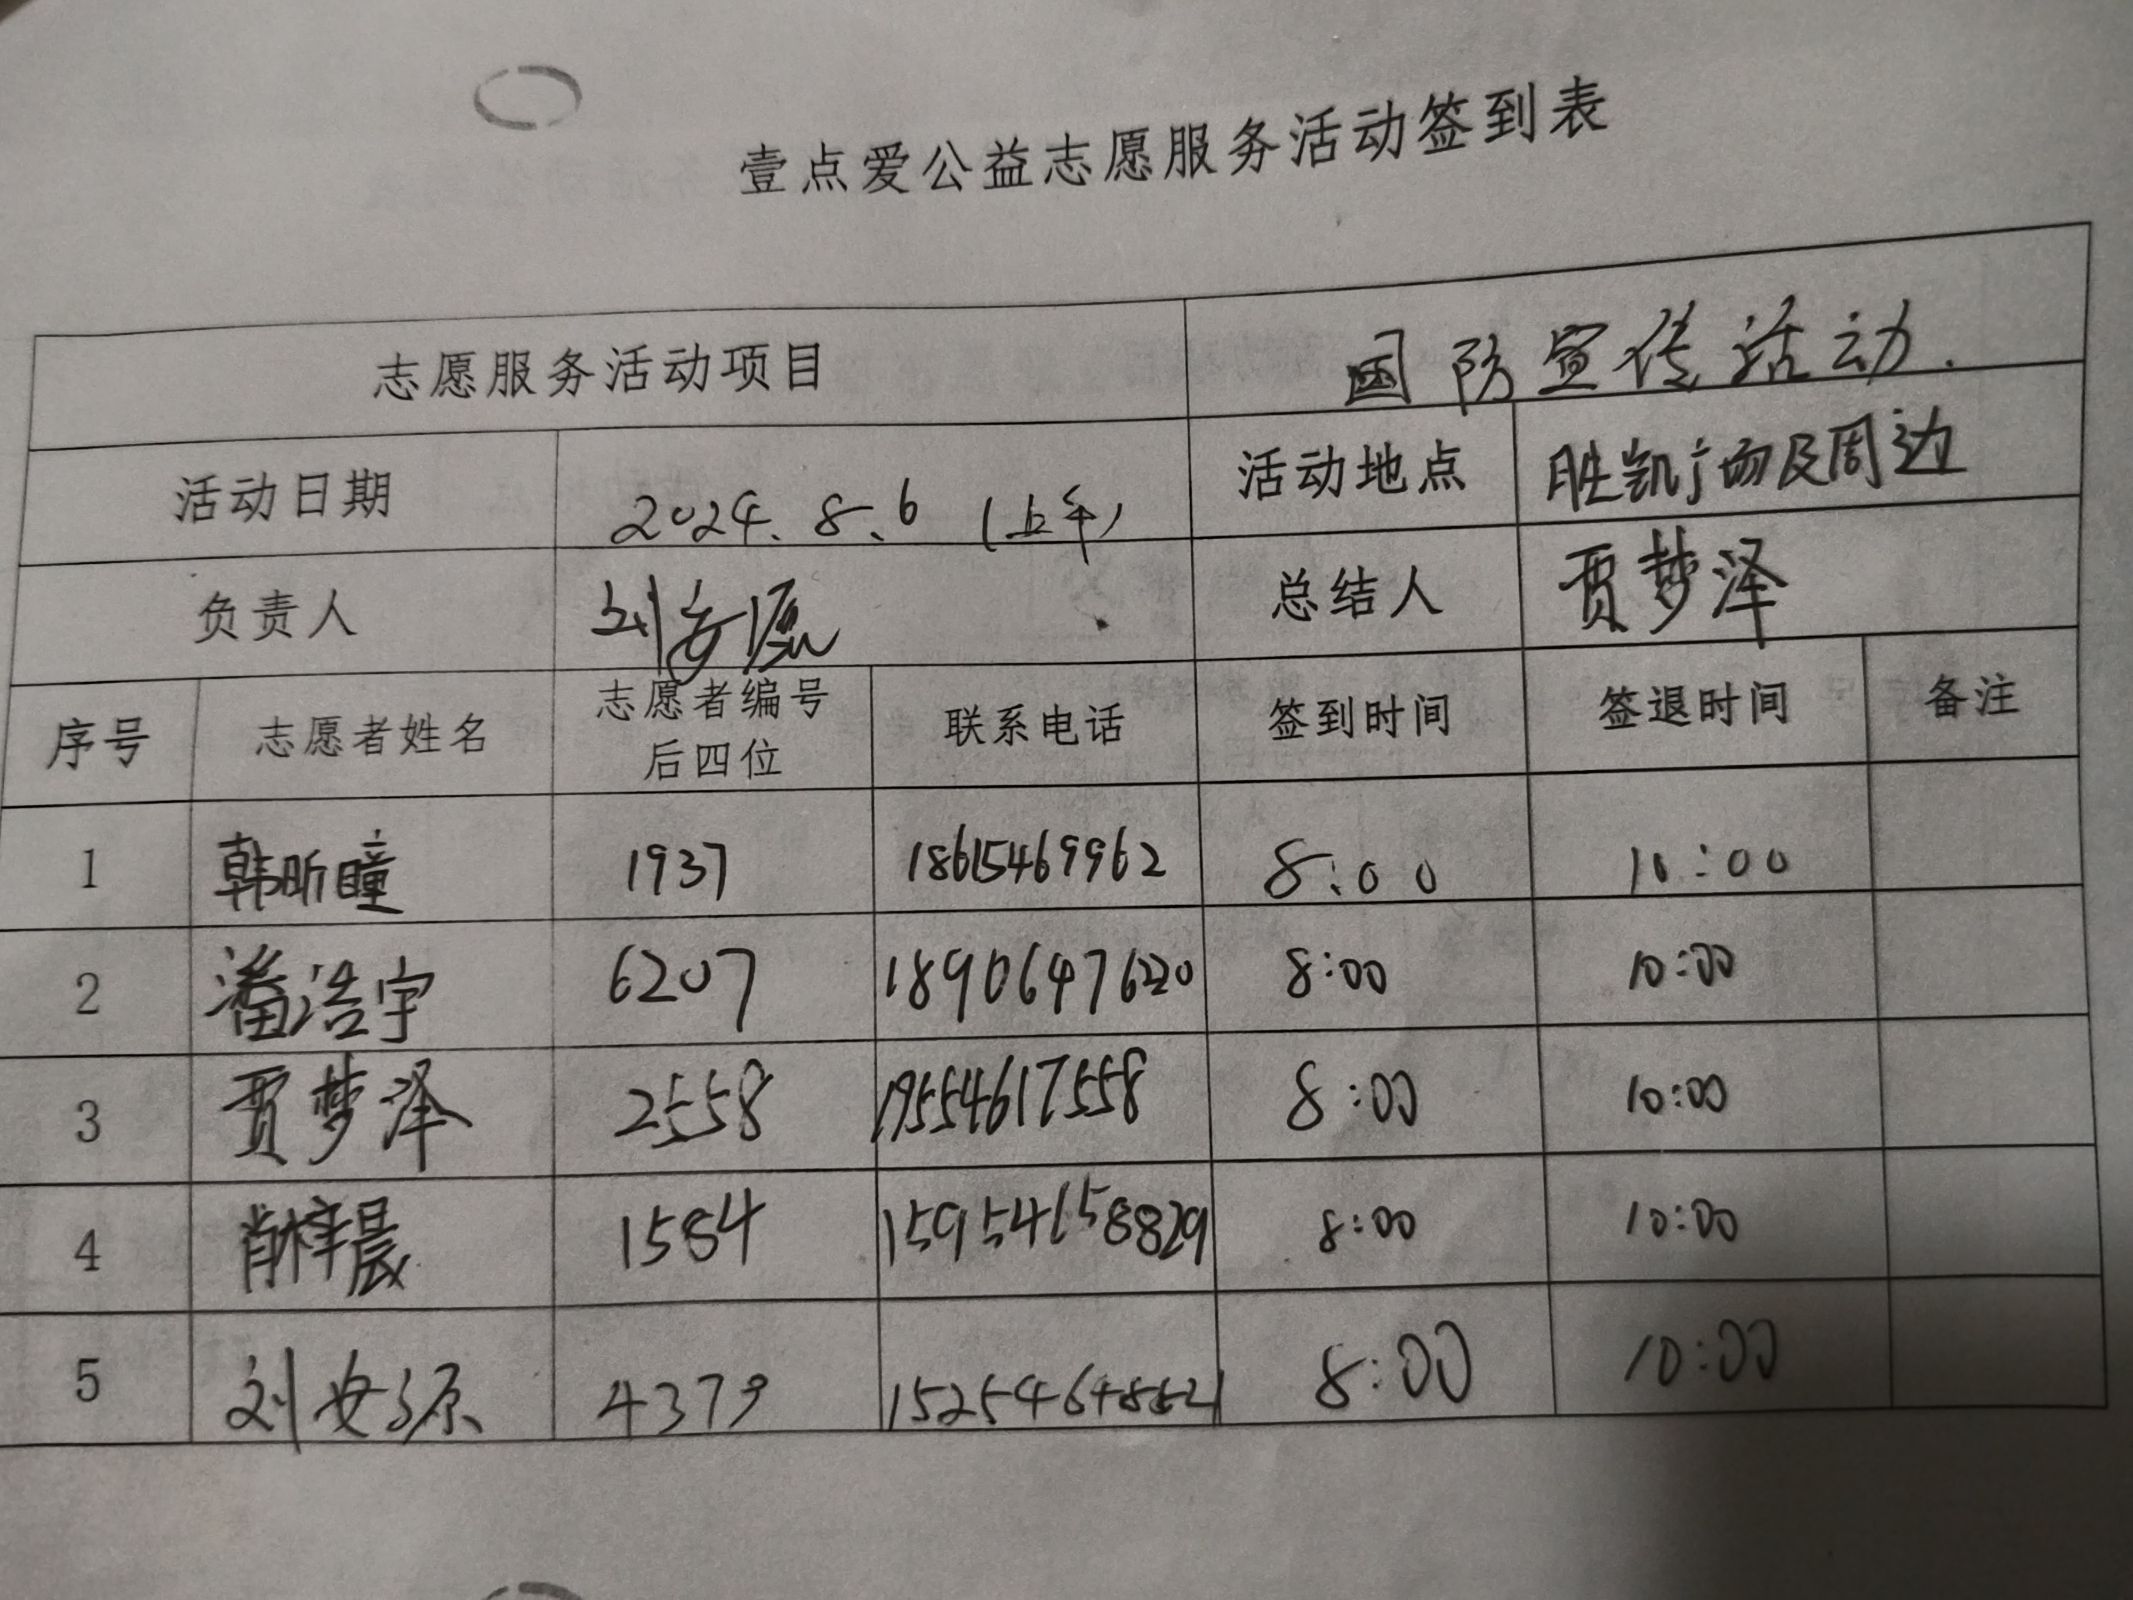 壹点爱公益志愿服务活动签到表
志愿服务活动项目 国防宣传活动.
活动日期 2024.8.6（上午） 活动地点 胜凯广场及周边
负责人 刘安源 总结人 贾梦泽
序号 志愿者姓名 志愿者编号后四位 联系电话 签到时间 签退时间 备注
1 韩昕瞳 1937 18615469962 8:00 10:00
2 潘浩宇 6207 18906476220 8:00 10:00
3 贾梦泽 2558 19554617558 8:00 10:00
4 肖梓晨 1584 15954658829 8:00 10:00
5 刘安源 4379 8:00 10:00